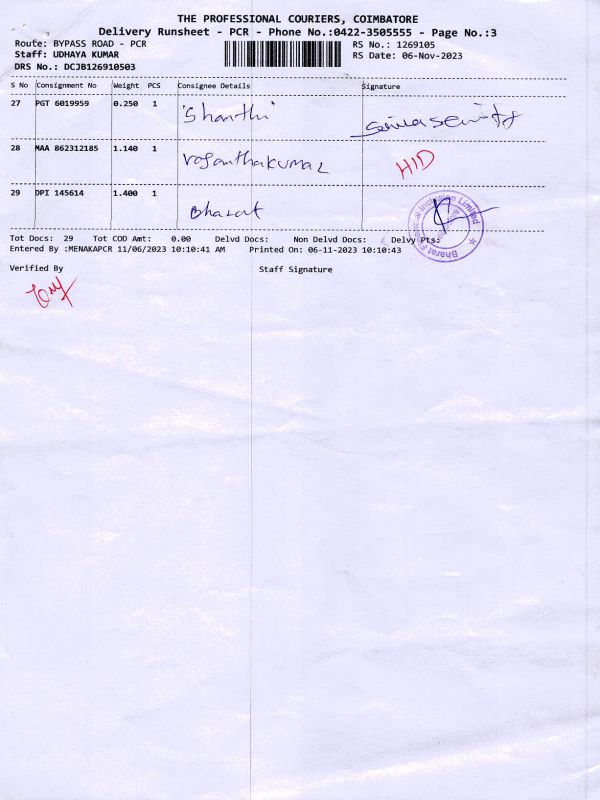 THE PROFESSIONAL COURIERS, COIMBATORE
Delivery Runsheet - PCR - Phone No.:0422-3505555 - Page No.:3
Route: BYPASS ROAD - PCR
Staff: UDHAYA KUMAR
DRS No.: DCJB126910503
RS No.: 1269105
RS Date: 06-Nov-2023
S No Consignment No Weight PCS Consignee Details Signature
27 PGT 6019959 0.250 1 'Shanthi'
28 MAA 862312185 1.140 1 Vasanthakumar HID
29 DPI 145614 1.400 1 Bharat
Bharat Financial Inclusion Limited
Tot Docs: 29 Tot COD Amt: 0.00 Delvd Docs: Non Delvd Docs: Delvy Pts:
Entered By :MENAKAPCR 11/06/2023 10:10:41 AM Printed On: 06-11-2023 10:10:43
Verified By Staff Signature